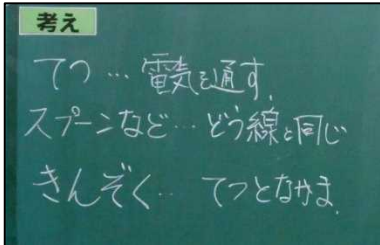 考え
てつ…電気を通す。
スプーンなど…どう線と同じ
きんぞく…てつとなかま